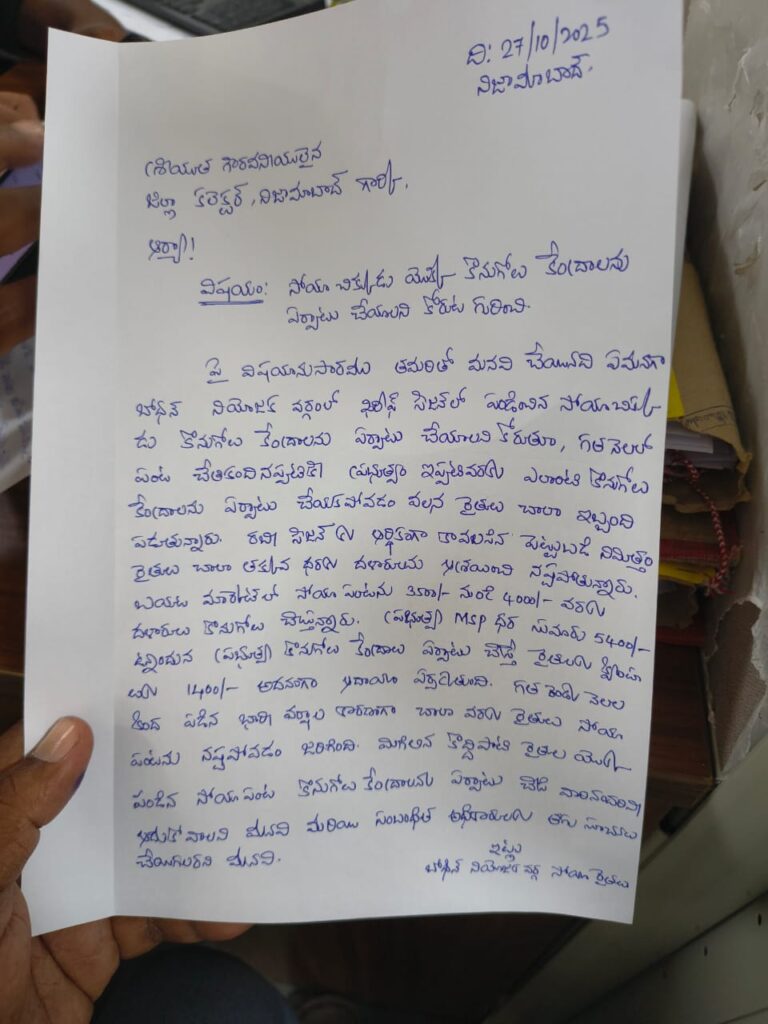 ది: 27/10/2025
నిజామాబాద్.
శ్రీయుత గౌరవనీయులైన
జిల్లా కలెక్టర్, నిజామాబాద్ గారికి,
ఆర్యా!
విషయం: సోయా చిక్కుడు యొక్క కొనుగోలు కేంద్రాలను
ఏర్పాటు చేయాలని కోరుట గురించి.
పై విషయానుసారము తమరితో మనవి చేయునది ఏమనగా
బోధన్ నియోజక వర్గంలో ఖరీఫ్ సీజన్‌లో పండించిన సోయాచిక్కు
డు కొనుగోలు కేంద్రాలను ఏర్పాటు చేయాలని కోరుతూ, గత నెలలో
పంట చేతికందినప్పటికీ ప్రభుత్వం ఇప్పటివరకు ఎలాంటి కొనుగోలు
కేంద్రాలను ఏర్పాటు చేయకపోవడం వలన రైతులు చాలా ఇబ్బంది
పడుతున్నారు. రబీ సీజన్ కు ఆర్థికంగా కావలసిన పెట్టుబడి నిమిత్తం
రైతులు చాలా తక్కువ ధరకు దళారులను ఆశ్రయించి నష్టపోతున్నారు.
బయట మార్కెట్‌లో సోయా పంటను 3500/- నుండి 4000/- వరకు
దళారులు కొనుగోలు చేస్తున్నారు. ప్రభుత్వ MSP ధర సుమారు 5400/-
ఉన్నందున ప్రభుత్వ కొనుగోలు కేంద్రాలు ఏర్పాటు చేస్తే రైతులకు క్వింటా
లుకు 1400/- అదనంగా ఆదాయం ఏర్పడుతుంది. గత రెండు నెలల
క్రింద పడిన భారీ వర్షాల కారణంగా చాలా వరకు రైతులు సోయా
పంటను నష్టపోవడం జరిగింది. మిగిలిన కొద్దిపాటి రైతుల యొక్క
పండిన సోయా పంట కొనుగోలు కేంద్రాలను ఏర్పాటు చేసి వారినందరిని
ఆదుకోవాలని మనవి మరియు సంబంధిత అధికారులకు తగు సూచనలు
చేయగలరని మనవి.
ఇట్లు
బోధన్ నియోజక వర్గ సోయా రైతులు